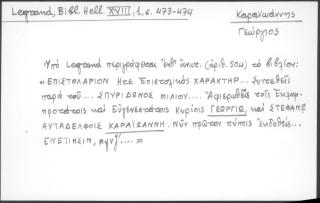 Legrand, Bibl. Hell. XVIII, 1, σ. 473-474
Καραϊωάννης
Γεώργιος
Ὑπό Legrand περιγράφεται ὑπ' ἀριθ. (ἀριθ. 504) τό βιβλίον:
«ΕΠΙΣΤΟΛΑΡΙΟΝ Ητε Ἐπιστολικός ΧΑΡΑΚΤΗΡ... Συντεθείς
παρά τοῦ... ΣΠΥΡΙΔΩΝΟΣ ΜΙΛΙΟΥ.... Ἀφιερωθείς τοῖς Ἐκλαμ-
προτάτοις καί Εὐγενεστάτοις Κυρίοις ΓΕΩΡΓΙῼ, καί ΣΤΕΦΑΝῼ
ΑΥΤΑΔΕΛΦΟΙΣ ΚΑΡΑΪΩΑΝΝΗ. Νῦν πρῶτον τύποις ἐκδοθείς...
ΕΝΕΤΙΗΣΙΝ, αψνζ΄.... »